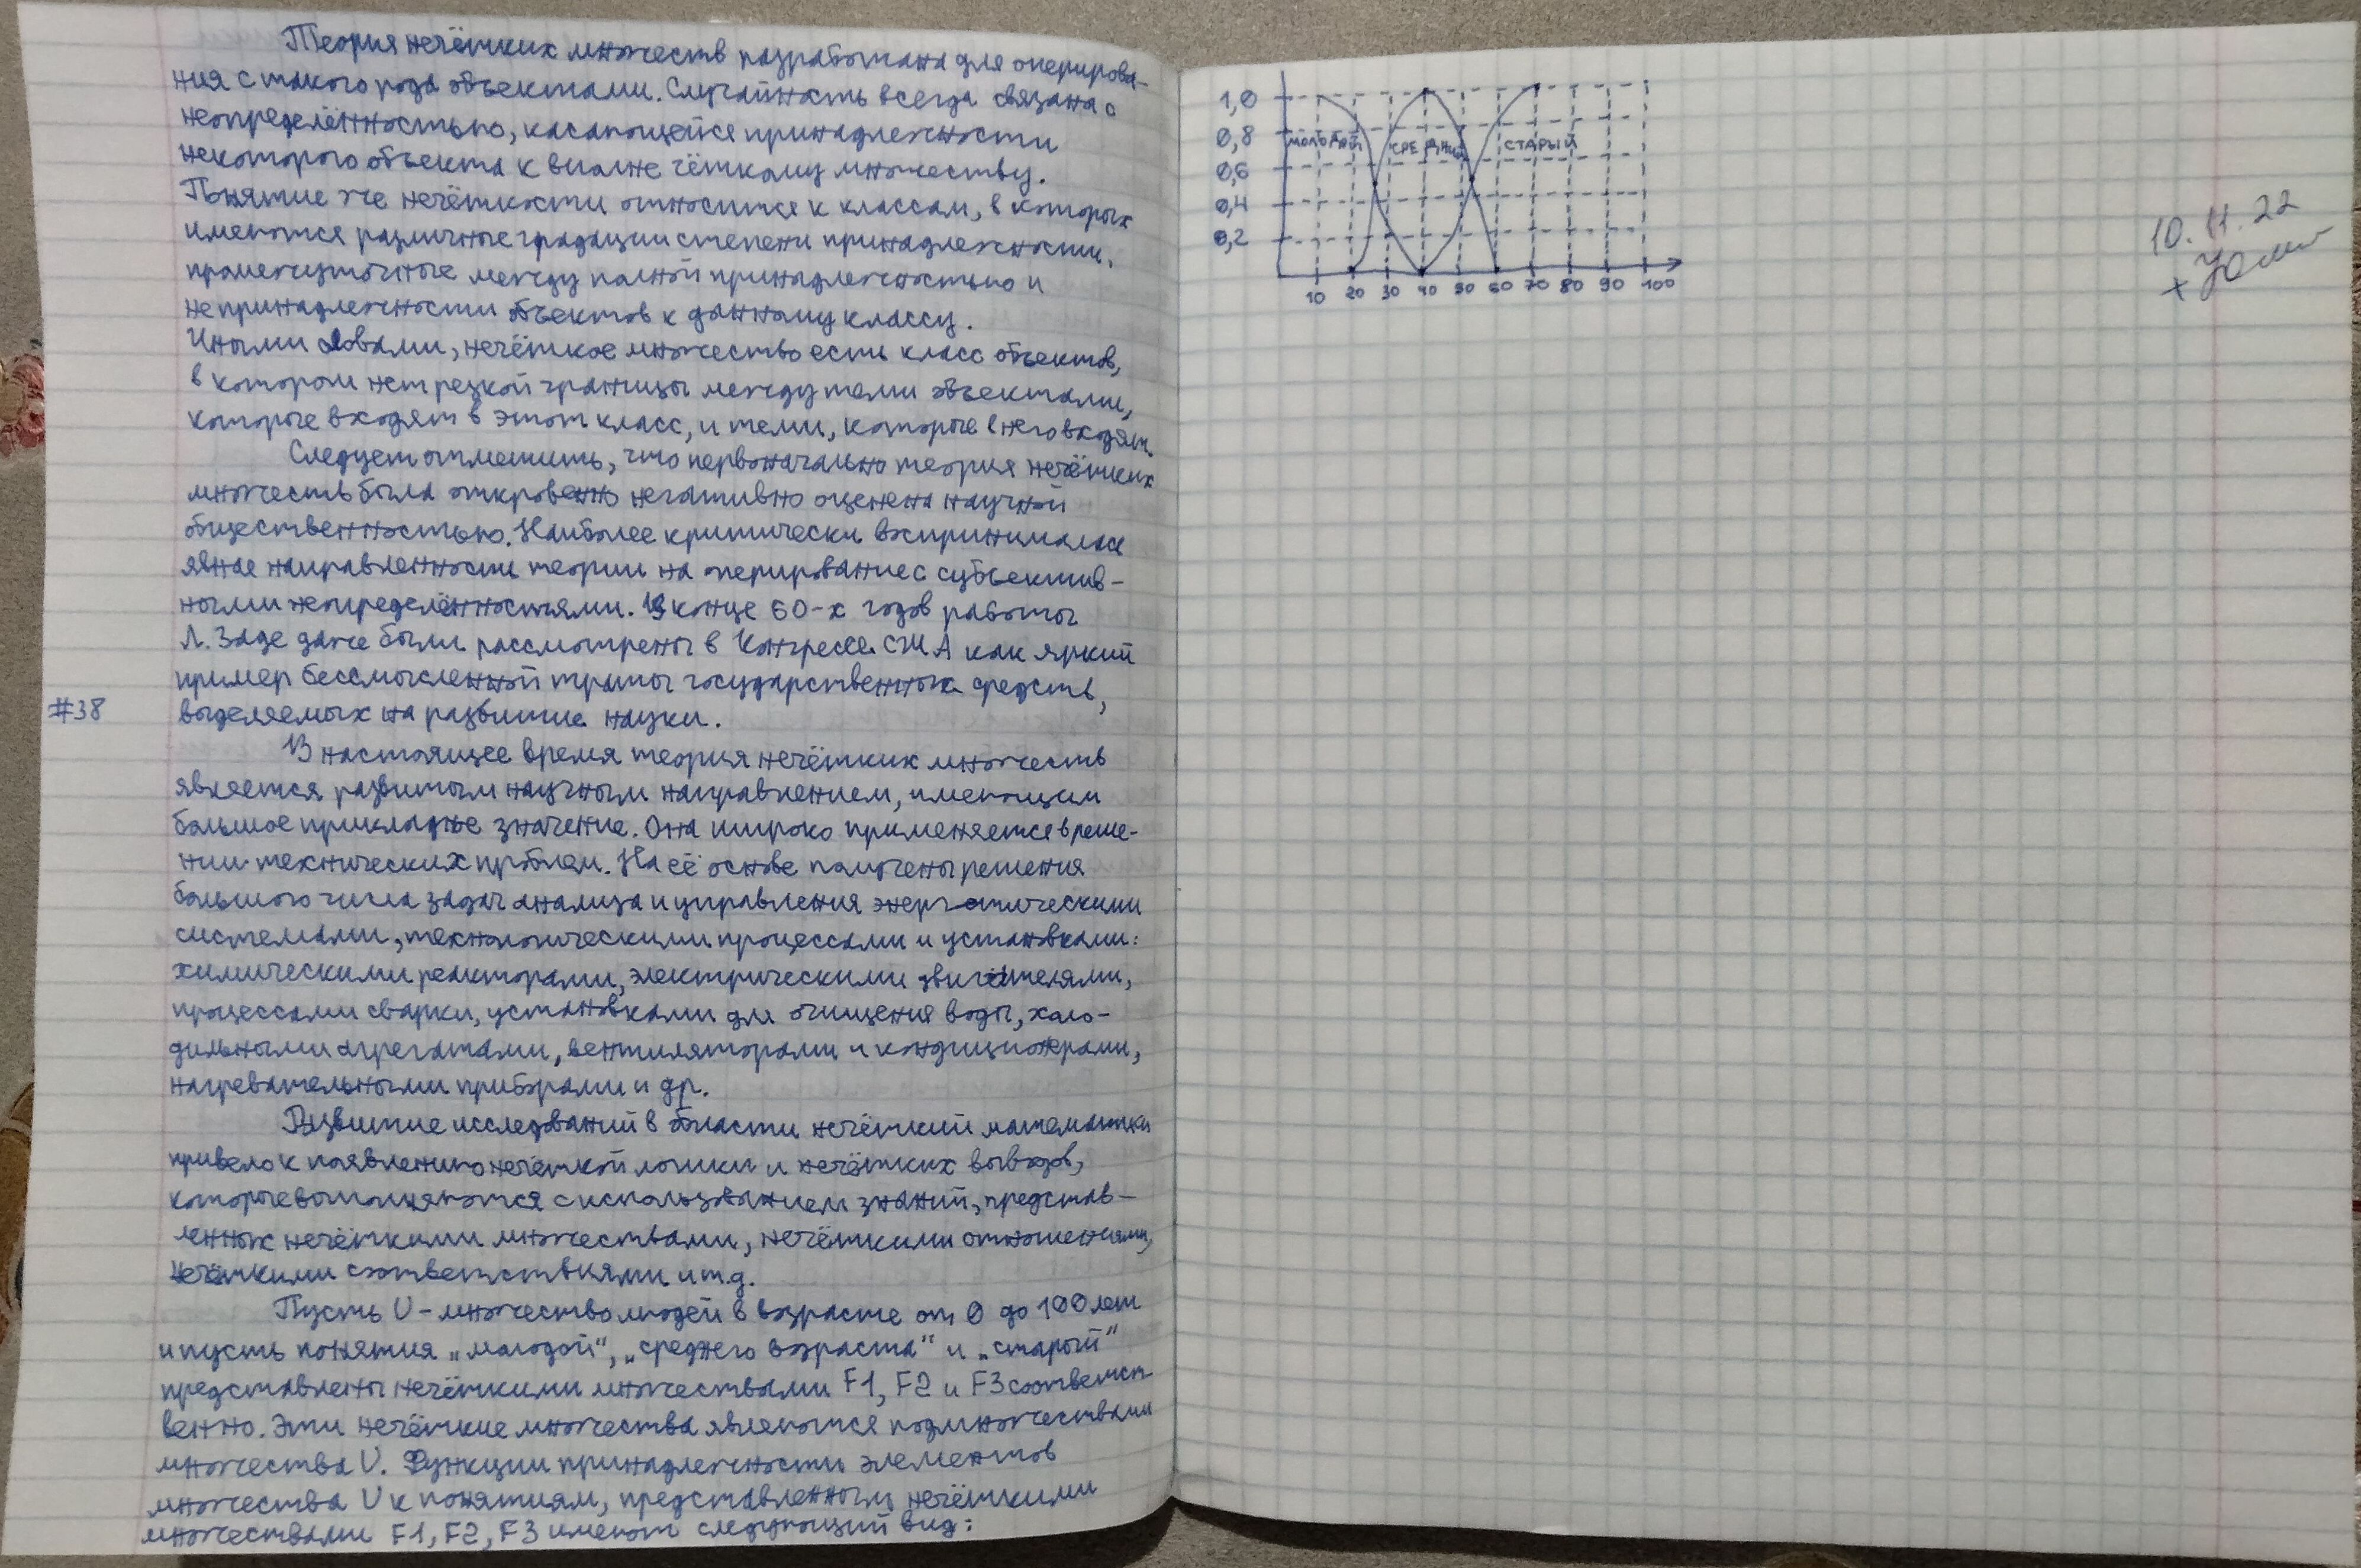 Теория нечётких множеств разработана для оперирова-
ния с такого рода объектами. Случайность всегда связана с
неопределённостью, касающейся принадлежности
некоторого объекта к вполне чёткому множеству.
Понятие же нечёткости относится к классам, в которых
имеются различные градации степени принадлежности,
промежуточные между полной принадлежностью и
непринадлежности объектов к данному классу.
Иными словами, нечёткое множество есть класс объектов,
в котором нет резкой границы между теми объектами,
которые входят в этот класс, и теми, которые в него входят.
Следует отметить, что первоначально теория нечётких
множеств была откровенно негативно оценена научной
общественностью. Наиболее критически воспринималась
явная направленность теории на оперирование с субъектив-
ными неопределённостями. В конце 60-х годов работы
Л. Заде даже были рассмотрены в Конгрессе США как яркий
пример бессмысленной траты государственных средств,
#38
выделяемых на развитие науки.
В настоящее время теория нечётких множеств
является развитым научным направлением, имеющим
большое прикладное значение. Она широко применяется в реше-
нии технических проблем. На её основе получены решения
большого числа задач анализа и управления энергетическими
системами, технологическими процессами и установками:
химическими реакторами, электрическими двигателями,
процессами сварки, установками для очищения воды, холо-
дильными агрегатами, вентиляторами и кондиционерами,
нагревательными приборами и др.
Развитие исследований в области нечёткий математики
привело к появлению нечёткой логики и нечётких выводов,
которые выполняются с использованием знаний, представ-
ленных нечёткими множествами, нечёткими отношениями,
нечёткими соответствиями и т.д.
Пусть U - множество людей в возрасте от 0 до 100 лет
и пусть понятия „молодой", „среднего возраста" и „старый"
представлены нечёткими множествами F1, F2 и F3 соответст-
венно. Эти нечёткие множества являются подмножествами
множества U. Функции принадлежности элементов
множества U к понятиям, представленным нечёткими
множествами F1, F2, F3 имеют следующий вид:
1,0
0,8 МОЛОДОЙ СРЕДНИЙ СТАРЫЙ
0,6
0,4
0,2
10 20 30 40 50 60 70 80 90 100
10.11.22